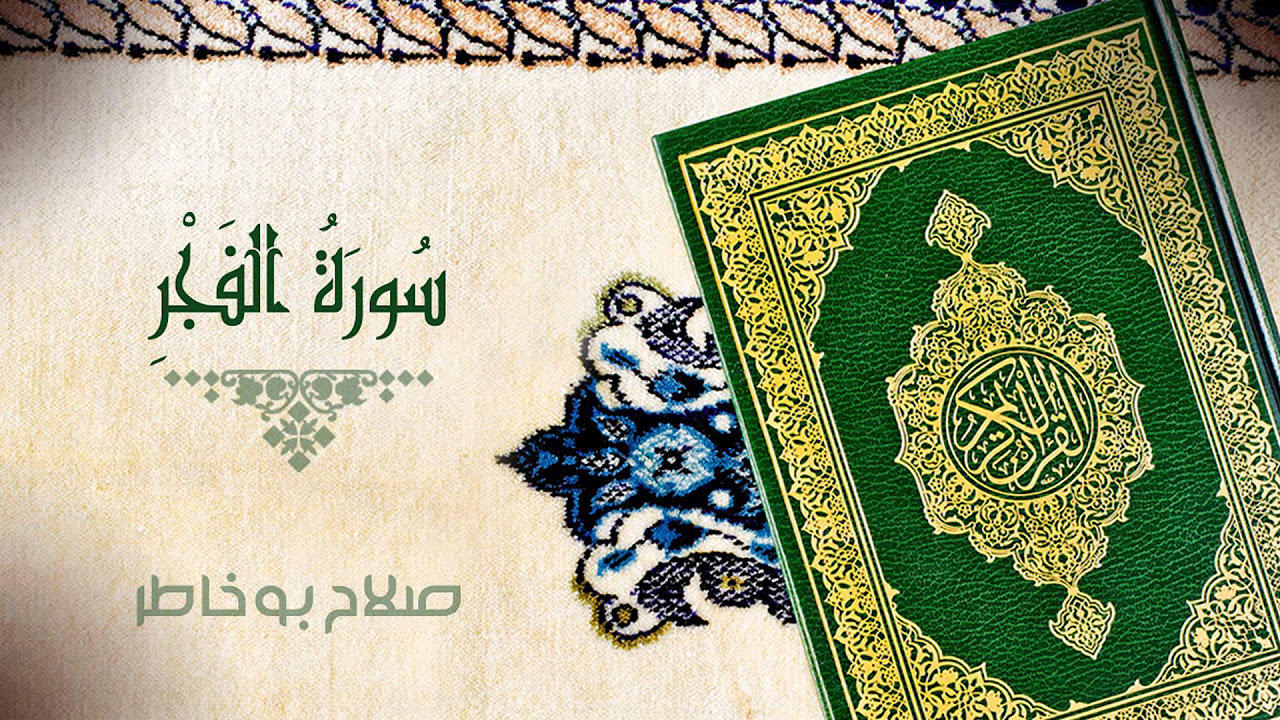 سُورَةُ الفَجْرِ
صلاح بوخاطر
القرآن الكريم